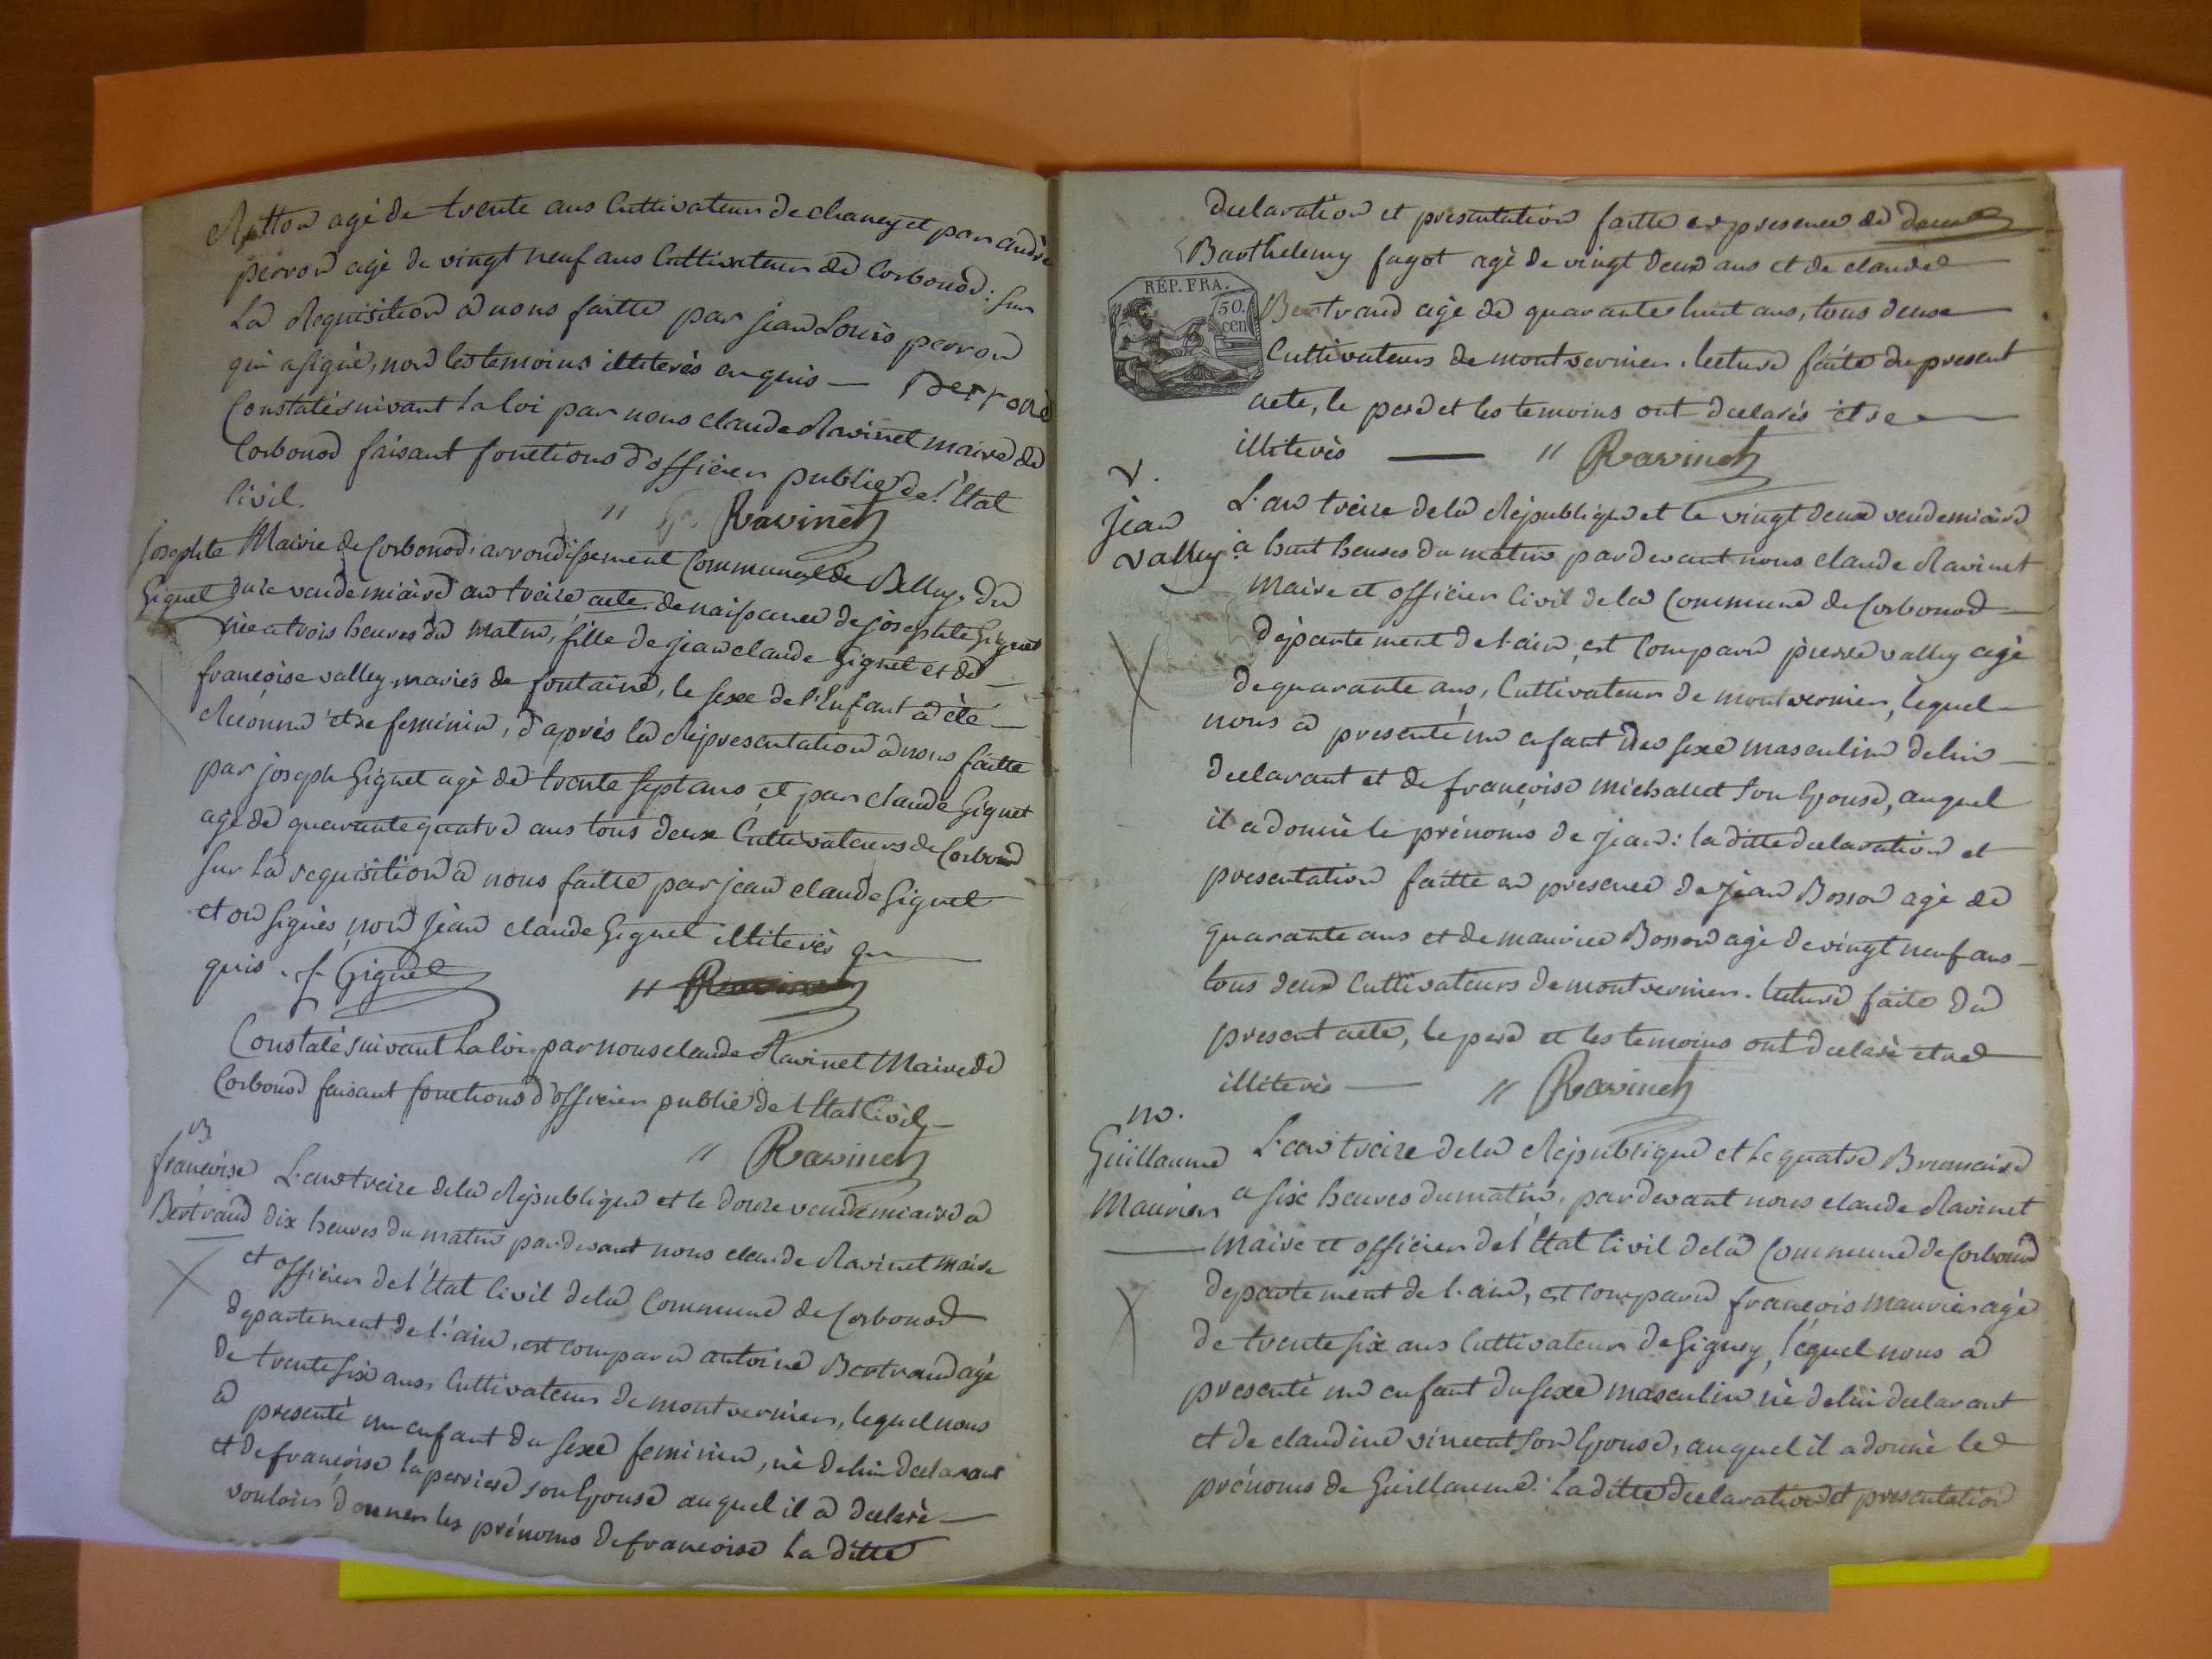 Rutton agé de trente ans Cultivateur de chaney et par andré
perron agé de vingt neuf ans Cultivateur de Corbonod: Sur
La Requisition a nous faitte par jean Louis perron
qui a signé, non les temoins illiterés enquis — perrond
Constaté suivant la loi par nous claude Ravinet maire de
Corbonod faisant fonctions d'officier public de l'Etat
Civil.
" Ravinet
josephte
Giguet
Mairie de Corbonod, arrondissement Communal de Belley. du
vendemiaire an treize acte de naissance de josephte Giguet
née a trois heures du matin, fille de jean claude Giguet et de
françoise valley mariés de fontaine, le sexe de l'Enfant a été
Reconnu etre feminin, d'après la Répresentation a nous faitte
par joseph Giguet agé de trente sept ans et par claude Giguet
agé de quarante quatre ans tous deux Cultivateurs de Corbonod
Sur la requisition a nous faitte par jean claude Giguet
et on signés, non jean claude Giguet illiterés en
quis. j. Giguet " Ravinet
Constaté suivant la loi par nous claude Ravinet Maire de
Corbonod faisant fonctions d'officier public de l'Etat Civil
" Ravinet
françoise
Bertrand
L'an treize de la République et le douze vendemiaire a
dix heures du matin pardevant nous claude Ravinet maire
et officier de l'Etat Civil de la Commune de Corbonod
departement de l'ain, est comparu antoine Bertrand agé
de trente six ans, Cultivateur de montvernier, lequel nous
a presenté un enfant du sexe feminin, né de lui declarant
et de françoise laperriere son Epouse auquel il a declaré
vouloir donner les prénoms de françoise la ditte
declaration et presentation faitte en presence de
Barthelemy fagot agé de vingt deux ans et de claude
RÉP. FRA.
50.
cen
Bertrand agé de quarante huit ans, tous deux
Cultivateurs de montvernier. lecture faite du present
acte, le pere et les temoins ont declarés etre
illiterés — " Ravinet
V.
jean
valley
L'an treize de la République et le vingt deux vendemiaire
a huit heures du matin pardevant nous claude Ravinet
Maire et officier Civil de la Commune de Corbonod
département de l'ain, est Comparu pierre valley agé
de quarante ans, Cultivateur de montvernier, lequel
nous a presenté un enfant du sexe masculin de lui
declarant et de françoise michallet son Epouse, auquel
il a donné le prénoms de jean: la ditte declaration et
presentation faitte en presence de jean Bosson agé de
quarante ans et de maurice Bosson agé de vingt neuf ans
tous deux Cultivateurs de montvernier. lecture faite du
present acte, le pere et les temoins ont declaré etre
illiterés — " Ravinet
m.
Guillaume
Maurier
L'an treize de la République et le quatre Brumaire
a six heures du matin, pardevant nous claude Ravinet
Maire et officier de l'Etat Civil de la Commune de Corbonod
departement de l'ain, est comparu françois maurier agé
de trente six ans Cultivateur de Gigney, lequel nous a
presenté un enfant du sexe masculin né de lui declarant
et de claudine vincent son Epouse, auquel il a donné le
prénoms de Guillaume. La ditte declaration et presentation